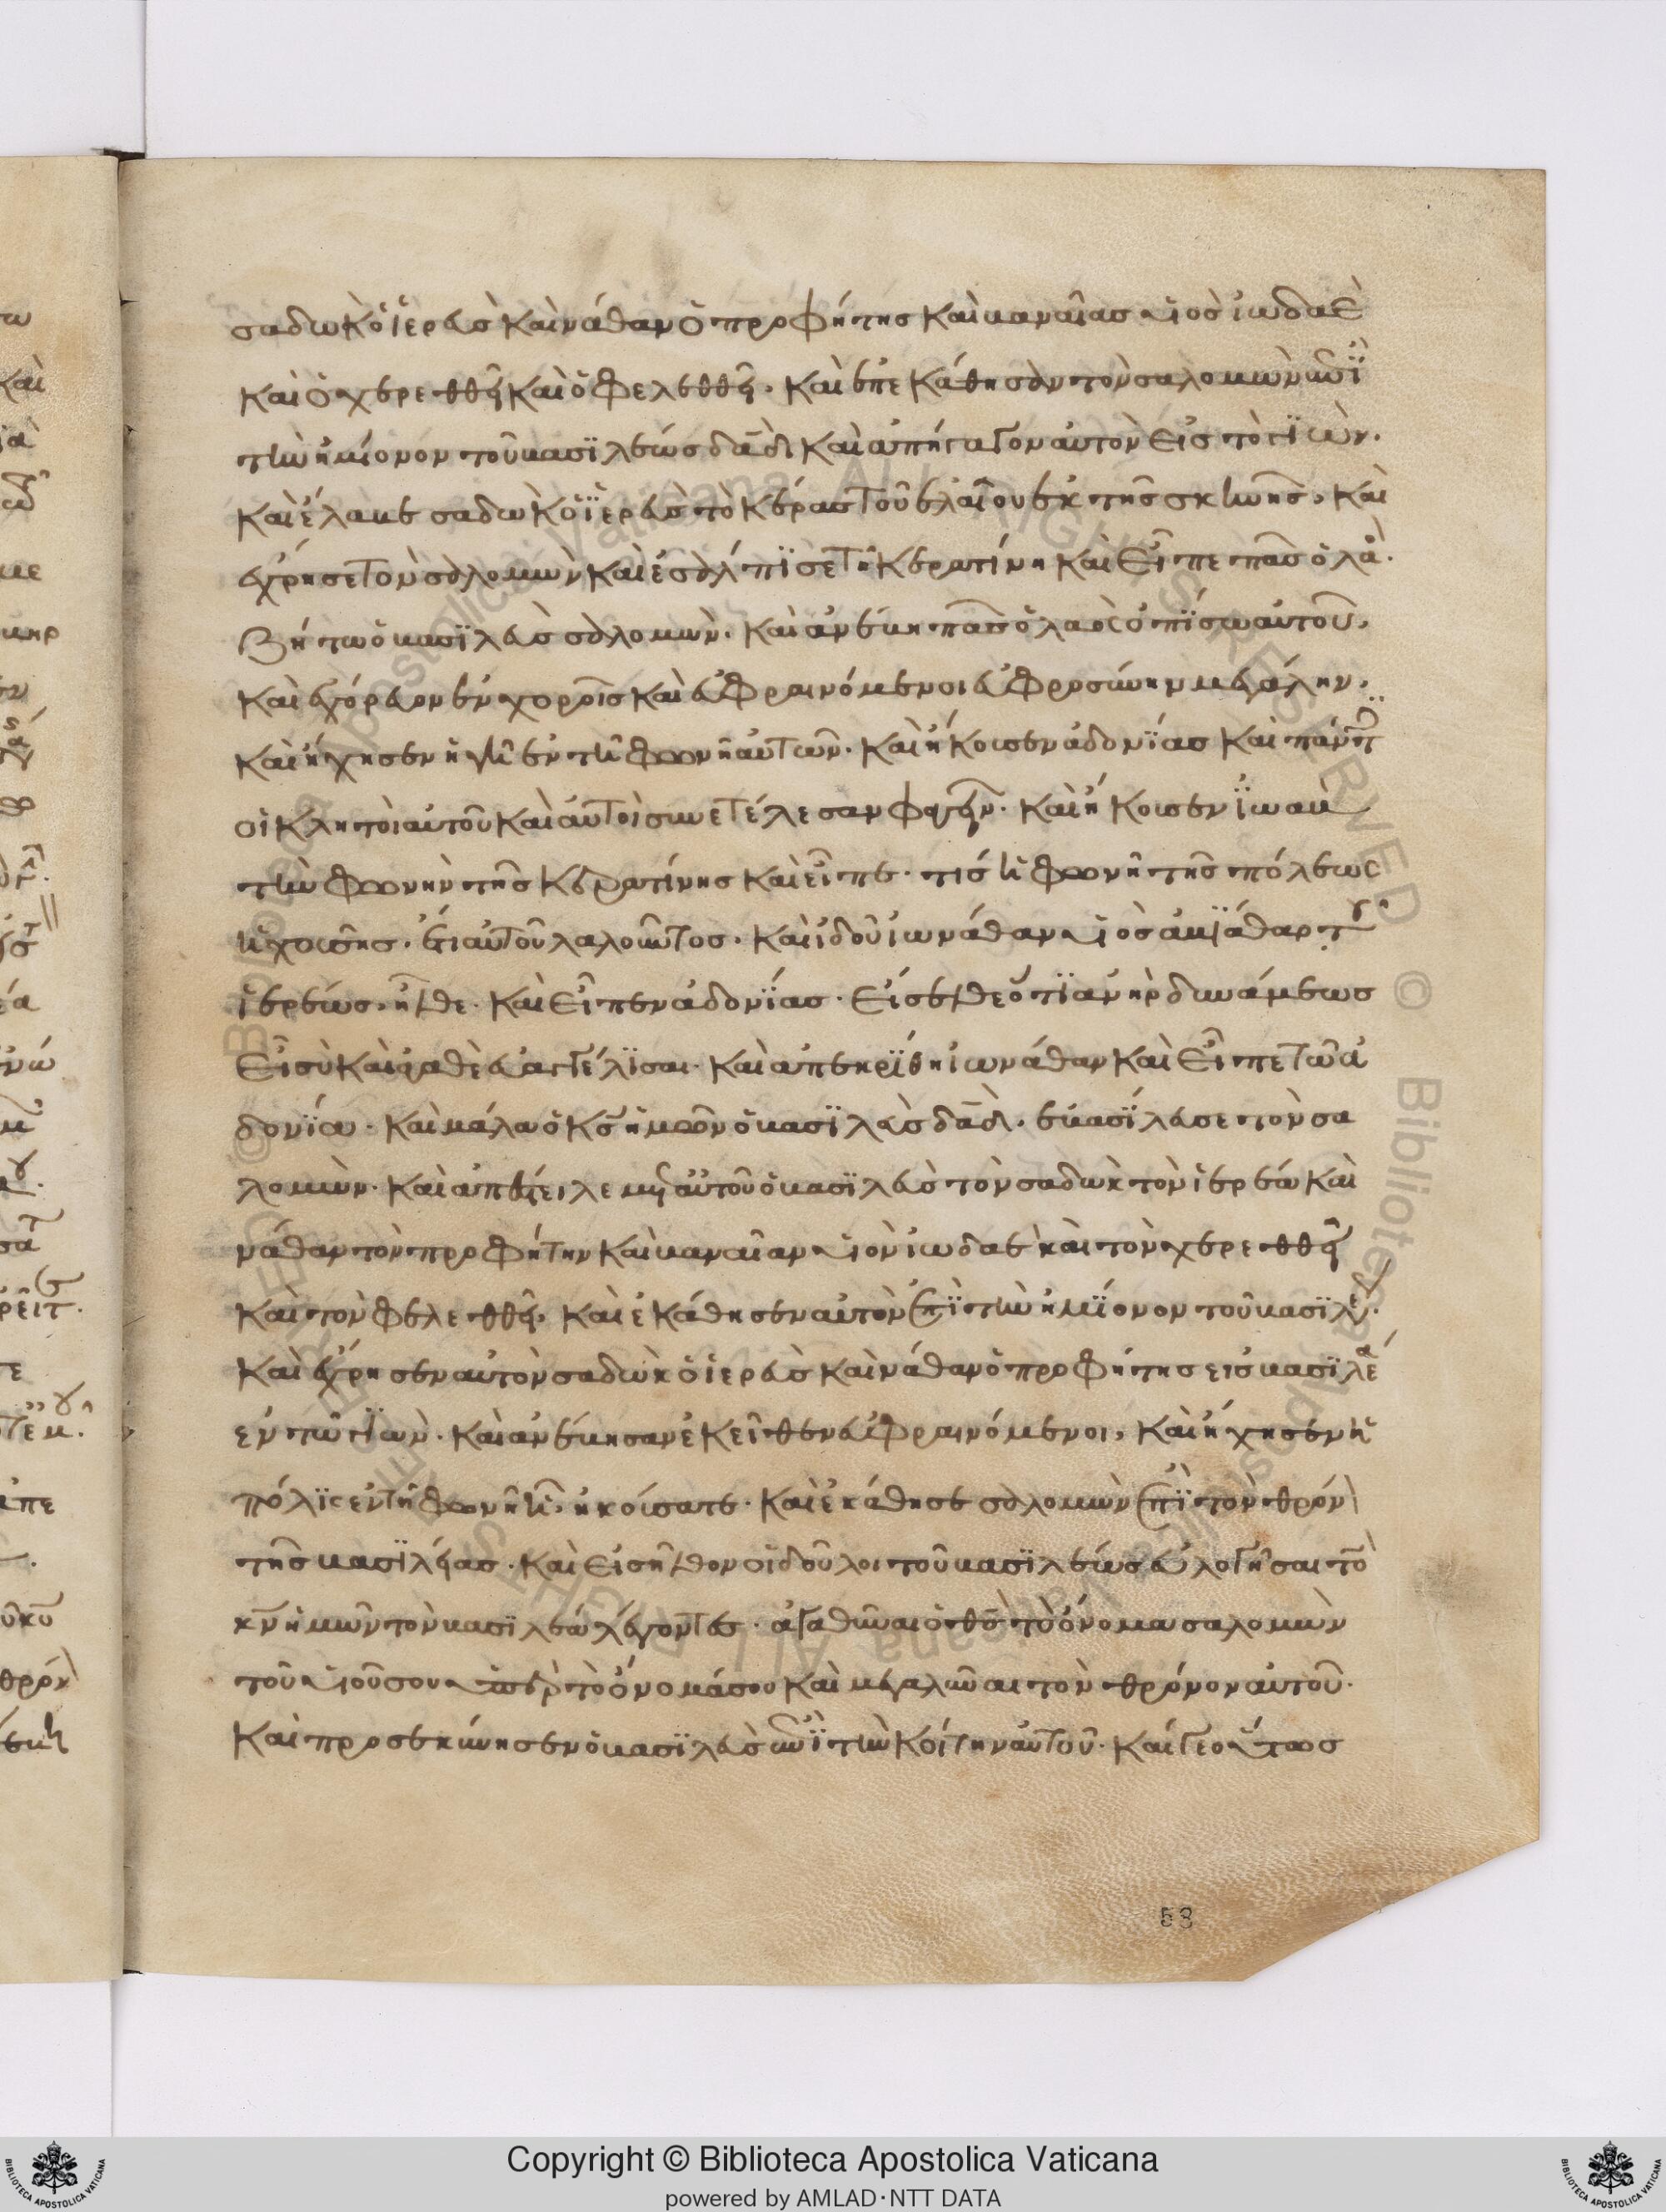 σαδὼκ ὁ ἱερεὺς καὶ νάθαν ὁ προφήτης καὶ βαναίας υἱὸς ἰωδαὲ
καὶ ὁ χερεθθεῖ καὶ ὁ φελεθθεῖ. καὶ ἐπεκάθησαν τὸν σαλομὼν ἐπῒ
τὴν ἡμίονον τοῦ βασϊλέως δᾱδ καὶ ἀπήγαγον αὐτὸν εἰς τὸ γϊών.
καὶ ἔλαβε σαδὼκ ὁ ἱ̈ερεὺς τὸ κέρας τοῦ ἐλαίου ἐκ τῆς σκηνῆς, καὶ
ἔχρησε τὸν σαλομὼν καὶ ἐσάλπϊσε τῇ κερατίνῃ καὶ εἶπε πᾶς ὁ λαὸ.
ζήτω ὁ βασϊλεὺς σαλομών. καὶ ἀνέβη πᾶς ὁ λαὸς ὀπΐσω αὐτοῦ,
καὶ ἐχόρευον ἐν χοροῖς καὶ εὐφραινόμενοι εὐφροσύνην μεγάλην,
καὶ ἤχησεν ἡ γῆ ἐν τῇ φωνῇ αὐτῶν. καὶ ἤκουσεν ἀδονΐας καὶ πάντ
οἱ κλητοὶ αὐτοῦ καὶ αὐτοὶ συνετέλεσαν φαγεῖν. καὶ ἤκουσεν ϊ̓ωαβ
τὴν φωνὴν τῆς κερατίνης καὶ εἶπε. τίς ἡ φωνὴ τῆς πόλεως
ἠχούσης. ἔτι αὐτοῦ λαλοῦντος. καὶ ἰδοῦ ἰωνάθαν υἱὸς ἀβϊάθαρ τοῦ
ἱερέως, ἦλθε. καὶ εἶπεν ἀδονΐας. εἴσελθε ὅτϊ ἀνὴρ δυνάμεως
εἶ σὺ καὶ ἀγαθὲ εὐαγγέλϊσαι. καὶ ἀπεκρΐθη ἰωνάθαν καὶ εἶπε τῷ ἀ
δονΐᾳ. καὶ μάλα ὁ κ̅ς ἡμῶν ὁ βασϊλεὺς δᾱδ. ἐβασΐλευσε τὸν σα
λομών. καὶ ἀπέστειλε μετ αὐτοῦ ὁ βασϊλεὺς τὸν σαδὼκ τὸν ἱερέα καὶ
νάθαν τὸν προφήτην καὶ βαναίαν υἱὸν ἰωδαὲ καὶ τὸν χερεθθεῖ
καὶ τὸν φελεθθεῖ, καὶ ἐκάθησεν αὐτὸν ἐπϊ τὴν ἡμΐονον τοῦ βασϊλέ.
καὶ ἔχρησεν αὐτὸν σαδὼκ ὁ ἱερεὺς καὶ νάθαν ὁ προφήτης εἰς βασϊλέα
ἐν τῷ γϊών. καὶ ἀνέβησαν ἐκεῖθεν εὐφραινόμενοι, καὶ ἤχησεν ἡ
πόλϊς ἐν τῇ φωνῇ ᾗ, ἠκούσατε. καὶ ἐκάθησε σαλομὼν ἐπϊ τὸν θρόν
τῆς βασϊλείας. καὶ εἰσῆλθον οἱ δοῦλοι τοῦ βασϊλέως εὐλογῆσαι τὸ
κ̅ν ἡμῶν τὸν βασϊλέα λέγοντες. ἀγαθῦναι ὁ θ̅ς τὸ ὄνομα σαλομὼν
τοῦ υἱοῦ σου ὑπὲρ τὸ ὄνομά σου καὶ μεγαλῦναι τὸν θρόνον αὐτοῦ.
καὶ προσεκύνησεν ὁ βασϊλεὺς ἐπῒ τὴν κοίτην αὐτοῦ. καί γε οὕτως
58